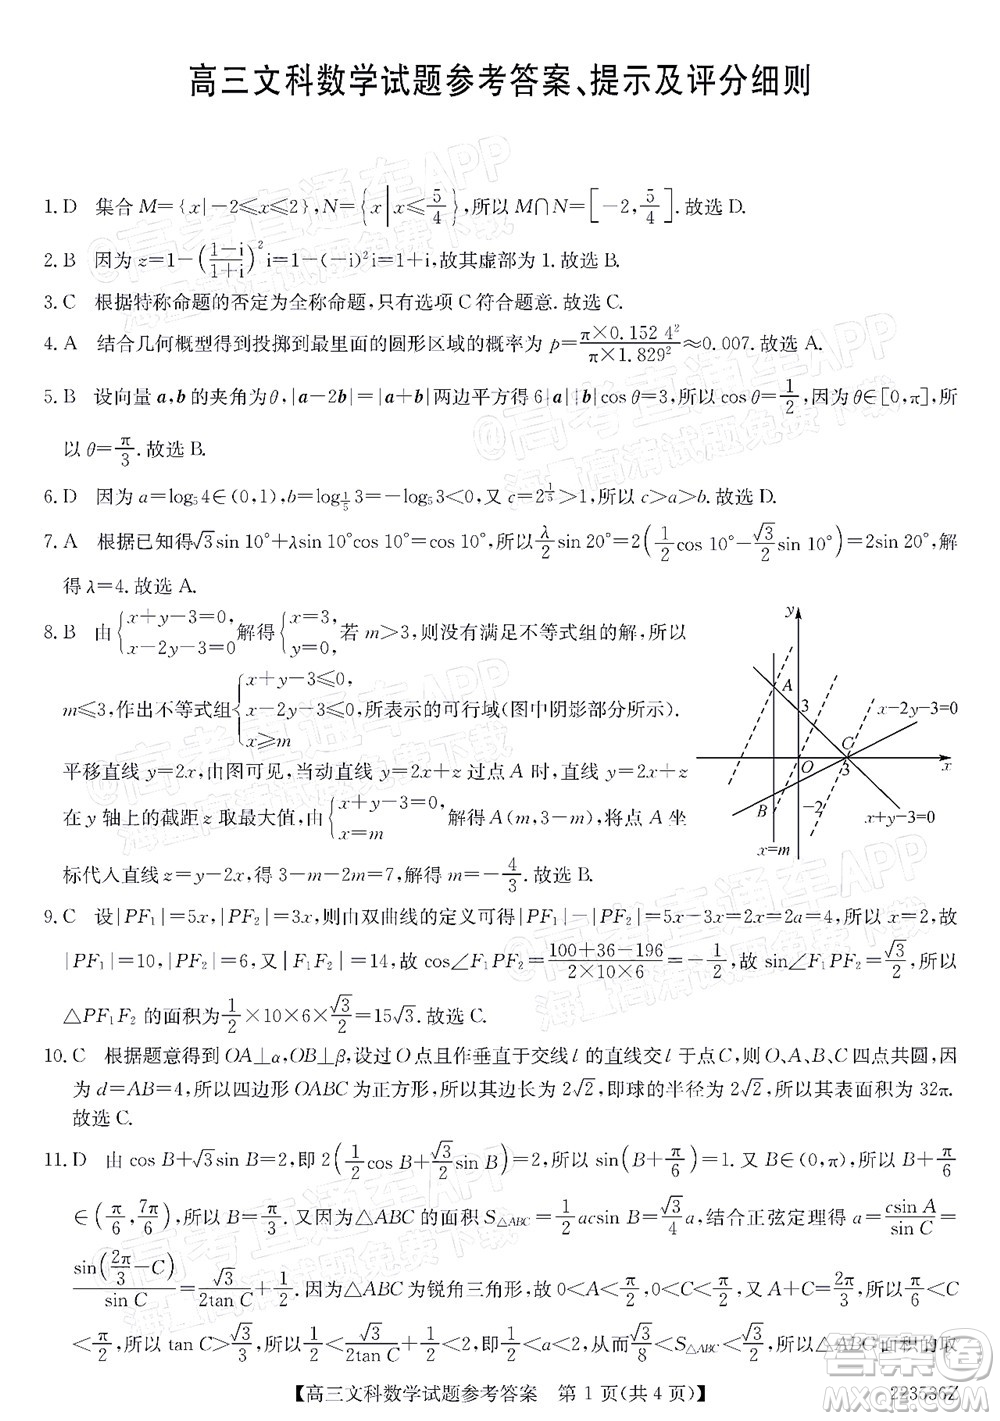 高三文科数学试题参考答案、提示及评分细则
1. D 集合 M={x|-2≤x≤2}, N={x|x≤5/4}, 所以 M∩N=[-2, 5/4]. 故选 D.
2. B 因为 z=1-((1-i)/(1+i))²i=1-(-i)²i=1+i, 故其虚部为 1. 故选 B.
3. C 根据特称命题的否定为全称命题, 只有选项 C 符合题意. 故选 C.
4. A 结合几何概型得到投掷到最里面的圆形区域的概率为 p=(π×0.152 4²)/(π×1.829²)≈0.007. 故选 A.
5. B 设向量 a,b 的夹角为θ, |a-2b|=|a+b|两边平方得 6|a||b|cos θ=3, 所以 cos θ=1/2, 因为 θ∈[0,π], 所
以 θ=π/3. 故选 B.
6. D 因为 a=log₅4∈(0,1), b=log_{1/5}3=-log₅3<0, 又 c=2^{1/5}>1, 所以 c>a>b. 故选 D.
7. A 根据已知得√3sin 10°+λsin 10°cos 10°=cos 10°, 所以 λ/2 sin 20°=2(1/2 cos 10°-√3/2 sin 10°)=2sin 20°, 解
得 λ=4. 故选 A.
8. B 由{x+y-3=0, x-2y-3=0,解得{x=3, y=0,若 m>3, 则没有满足不等式组的解, 所以
m≤3, 作出不等式组{x+y-3≤0, x-2y-3≤0, x≥m 所表示的可行域(图中阴影部分所示).
平移直线 y=2x, 由图可见, 当动直线 y=2x+z 过点 A 时, 直线 y=2x+z
在 y 轴上的截距 z 取最大值, 由{x+y-3=0, x=m 解得 A(m,3-m), 将点 A 坐
标代入直线 z=y-2x, 得 3-m-2m=7, 解得 m=-4/3. 故选 B.
y
A
3
x-2y-3=0
C
O
3
x
B
-2
x+y-3=0
x=m
9. C 设|PF₁|=5x, |PF₂|=3x, 则由双曲线的定义可得|PF₁|-|PF₂|=5x-3x=2x=2a=4, 所以 x=2, 故
|PF₁|=10, |PF₂|=6, 又|F₁F₂|=14, 故 cos∠F₁PF₂=(100+36-196)/(2×10×6)=-1/2, 故 sin∠F₁PF₂=√3/2, 所以
△PF₁F₂ 的面积为 1/2×10×6×√3/2=15√3. 故选 C.
10. C 根据题意得到 OA⊥α, OB⊥β, 设过 O 点且作垂直于交线 l 的直线交 l 于点 C, 则 O、A、B、C 四点共圆, 因
为 d=AB=4, 所以四边形 OABC 为正方形, 所以其边长为 2√2, 即球的半径为 2√2, 故其表面积为 32π.
故选 C.
11. D 由 cos B+√3sin B=2, 即 2(1/2 cos B+√3/2 sin B)=2, 所以 sin(B+π/6)=1. 又 B∈(0,π), 所以 B+π/6
∈(π/6, 7π/6), 所以 B=π/3. 又因为△ABC 的面积 S△ABC=1/2 acsin B=√3/4 a, 结合正弦定理得 a=csin A/sin C=
sin(2π/3-C)/sin C=√3/(2tan C)+1/2. 因为△ABC 为锐角三角形, 故 0<A<π/2, 0<C<π/2, 又 A+C=2π/3, 所以 π/6<C
<π/2, 所以 tan C>√3/3, 所以 1/2<√3/(2tan C)+1/2<2, 即 1/2<a<2, 从而 √3/8<S△ABC<√3/2, 所以△ABC 面积的取
【高三文科数学试题参考答案 第 1 页(共 4 页)】
223536Z
@高考直通车APP
海量高清试题免费下载
@高考直通车APP
海量高清试题免费下载
答案圈
MXQE.COM